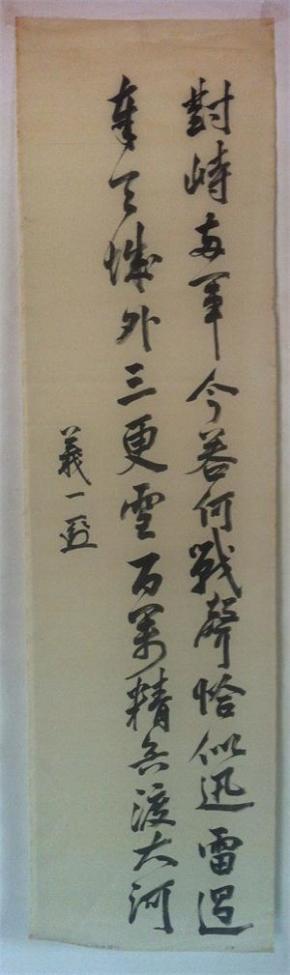 對峙両軍今若何戦聲恰似迅雷過
奉天城外三更雪百萬精兵渡大河
義一題